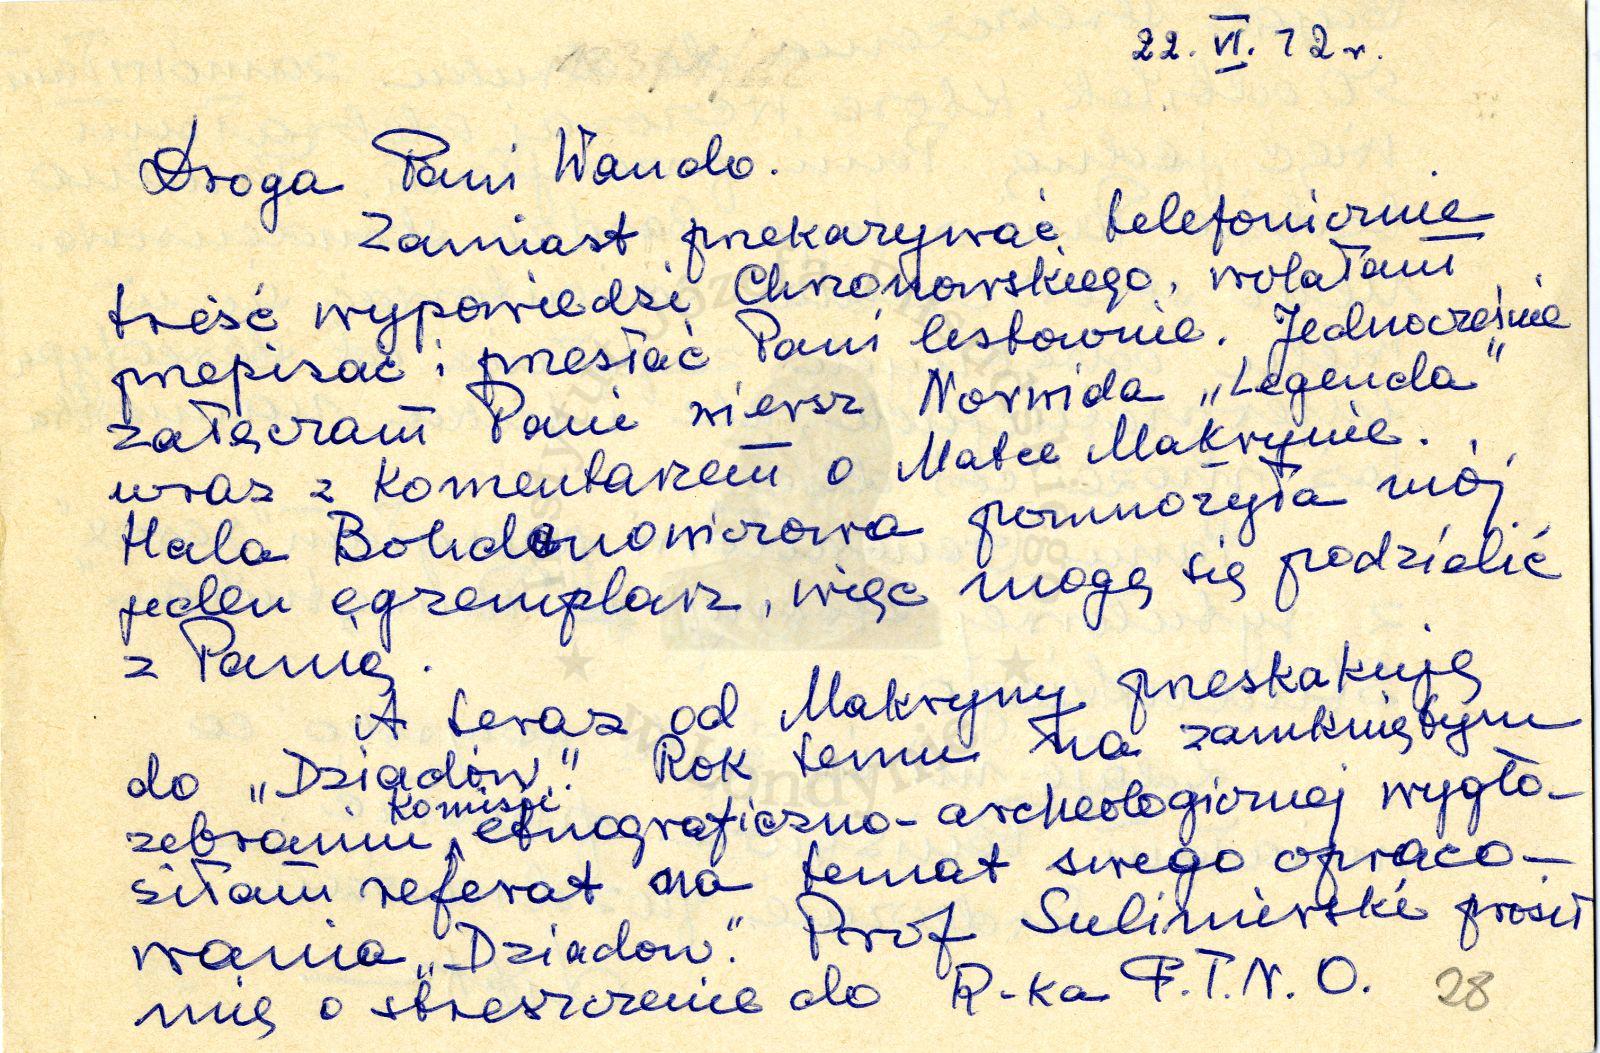 22. VI. 72 r.
Droga Pani Wando.
Zamiast przekazywać telefonicznie
treść wypowiedzi Chronowskiego, wolałam
przepisać i przesłać Pani listownie. Jednocześnie
załączam Pani wiersz Norwida „Legenda"
wraz z komentarzem o Matce Makrynie.
Hala Bohdanowiczowa pomnożyła mój
jeden egzemplarz, więc mogę się podzielić
z Panią.
A teraz od Makryny przeskakuję
do „Dziadów". Rok temu na zamkniętym
zebraniu Komisji etnograficzno-archeologicznej wygło-
siłam referat na temat swego opraco-
wania „Dziadów". Prof Sulimirski prosił
mię o streszczenie do R-ka P.T.N.O.
28